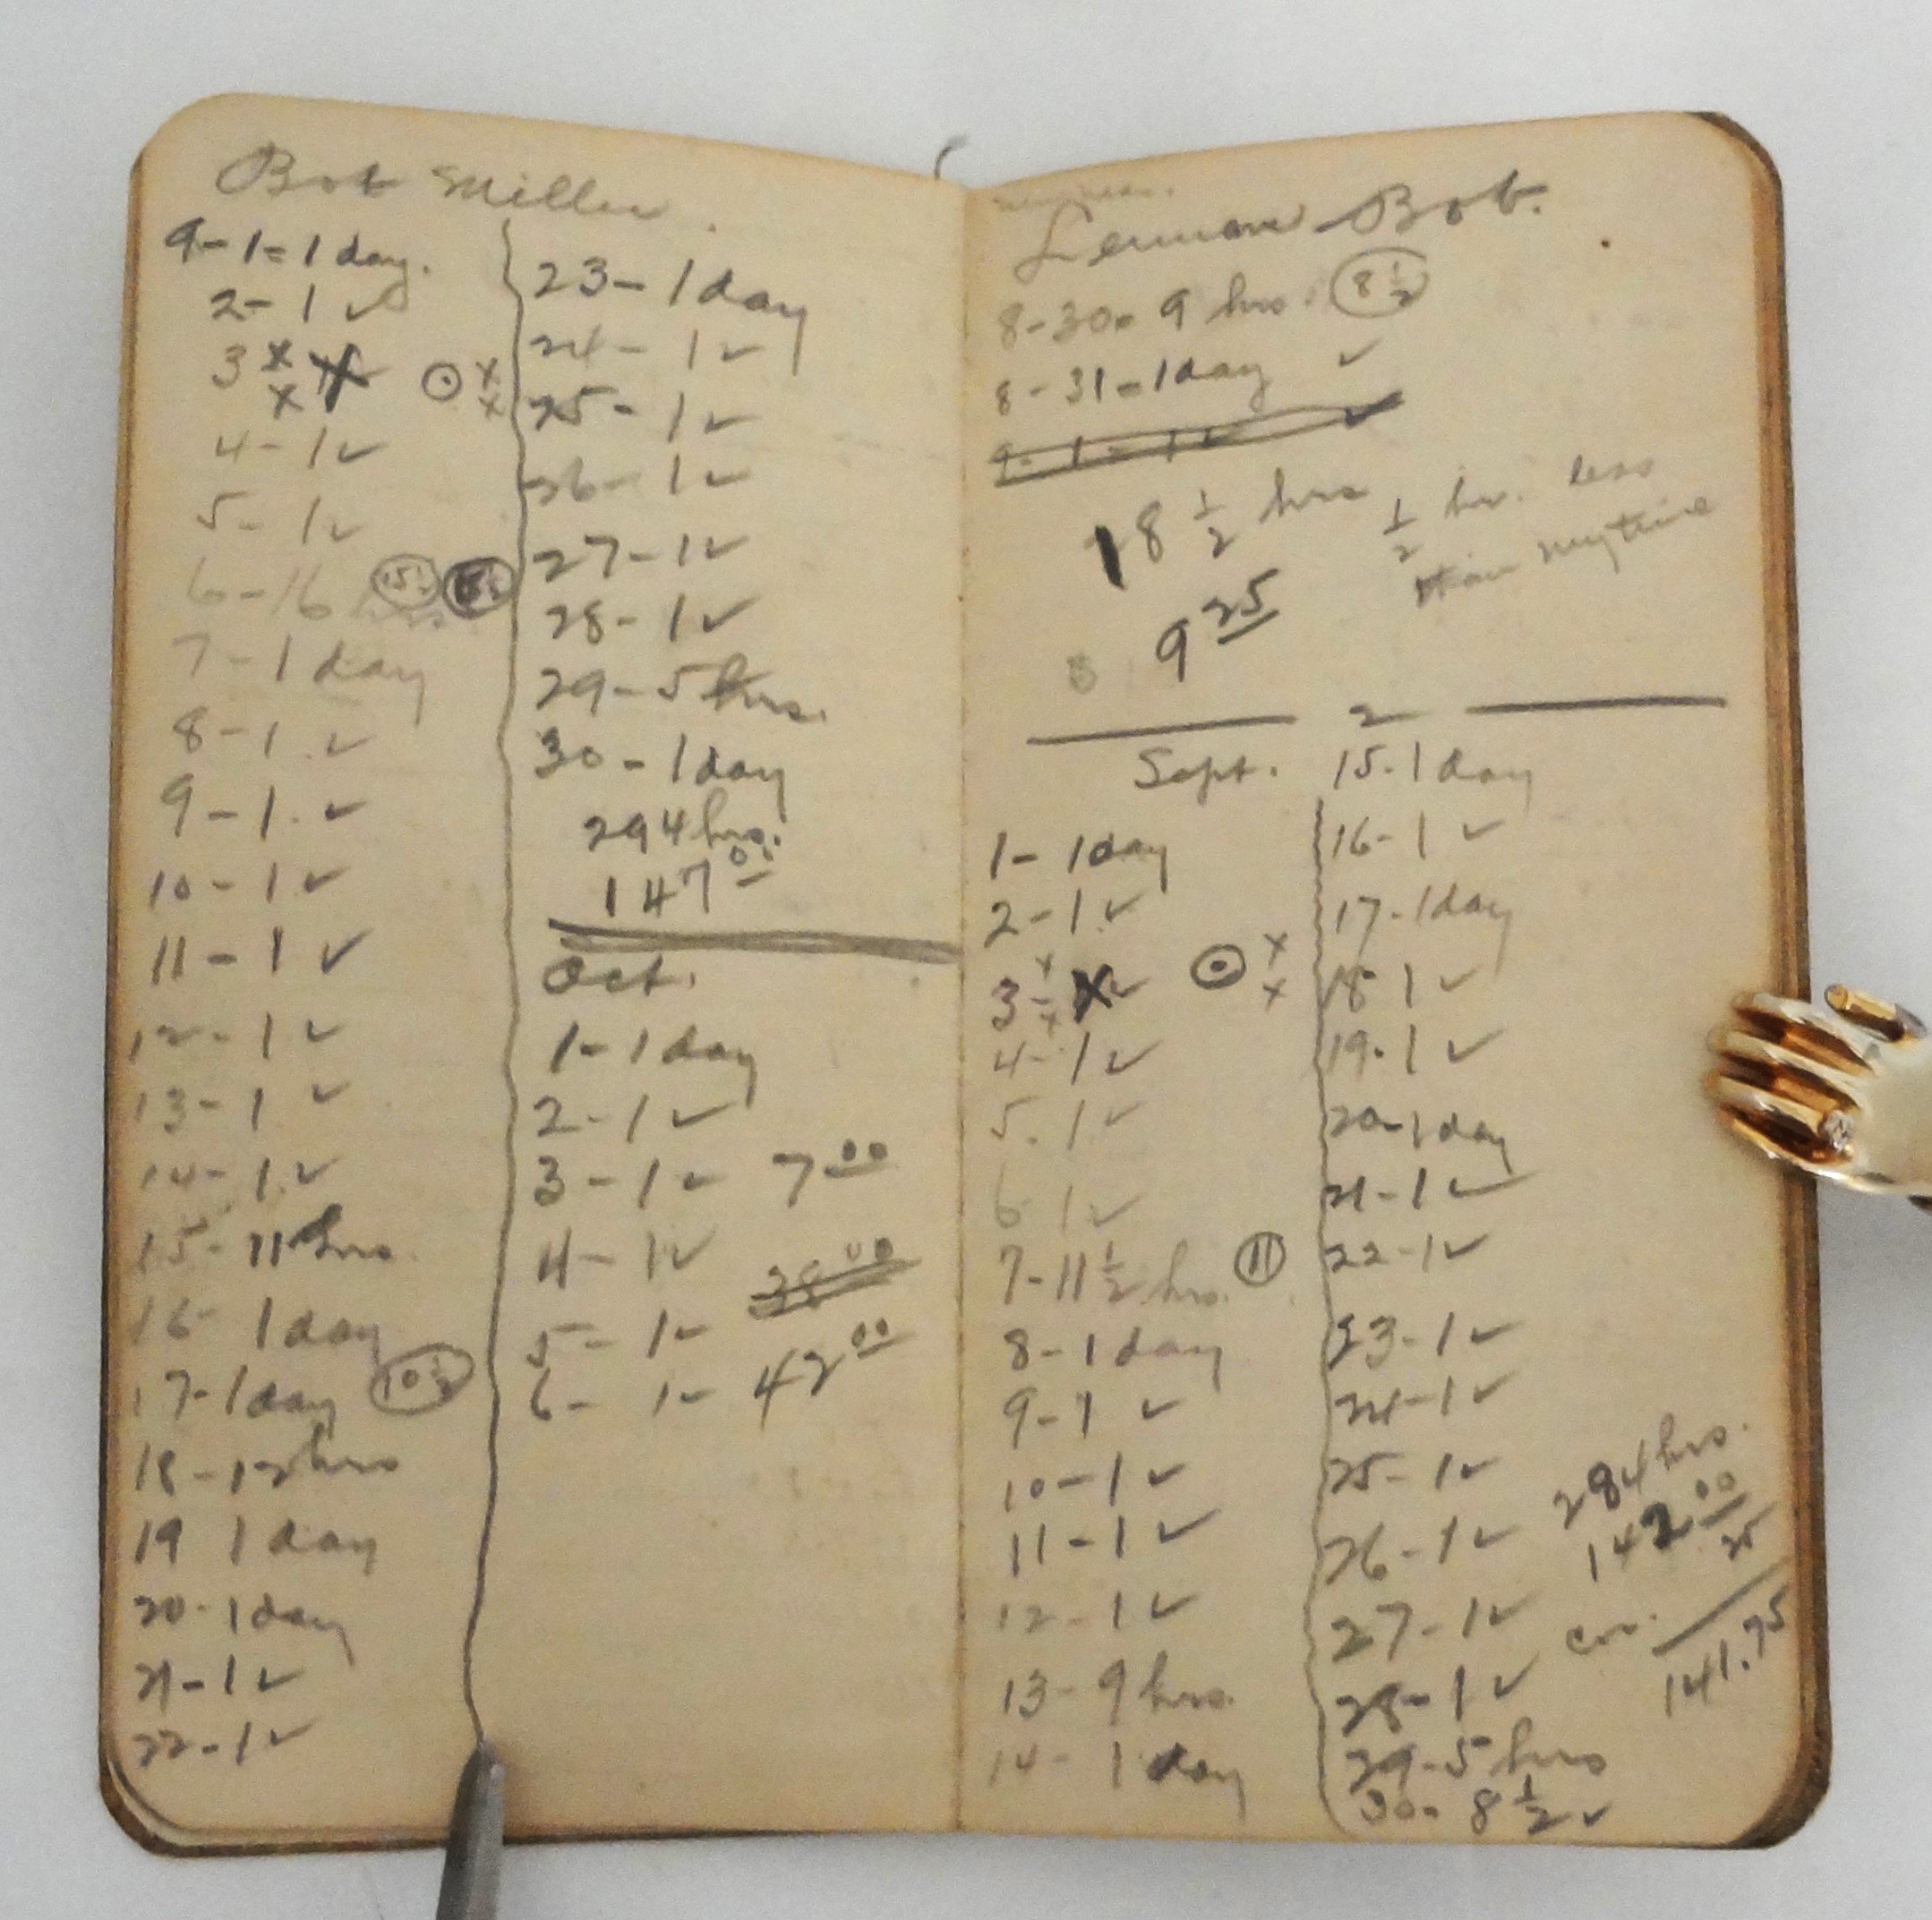 Bob Miller.
9-1=1 day.
2-1 ✓
3 x x ⊙ x x
4-1 ✓
5-1 ✓
6-16 hrs (15½)
7-1 day
8-1. ✓
9-1. ✓
10-1 ✓
11-1 ✓
12-1 ✓
13-1 ✓
14-1 ✓
15-11 hrs.
16-1 day
17-1 day (10½)
18-12 hrs
19 1 day
20-1 day
21-1 ✓
22-1 ✓
23-1 day
24-1 ✓
25-1 ✓
26-1 ✓
27-1 ✓
28-1 ✓
29-5 hrs.
30-1 day
294 hrs.
147 00
Oct.
1-1 day
2-1 ✓
3-1 ✓ 7 00
4-1 ✓
38 00
5-1 ✓
42 00
6-1 ✓
Bob.
8-30= 9 hrs. (8½)
8-31=1 day ✓
9-1=1 ✓ ✓
18½ hrs ½ hr. less
than mytime
9 25
2
Sept.
1-1 day
2-1 ✓
3- x x ✓ ⊙ x x
4-1 ✓
5.1 ✓
6 1 ✓
7-11½ hrs. (11)
8-1 day
9-1 ✓
10-1 ✓
11-1 ✓
12-1 ✓
13-9 hrs.
14-1 day
15.1 day
16-1 ✓
17-1 day
18-1 ✓
19.1 ✓
20-1 day
21-1 ✓
22-1 ✓
23-1 ✓
24-1 ✓
25-1 ✓
26-1 ✓
27-1 ✓
28-1 ✓
29-5 hrs
30=8½ ✓
284 hrs.
142 00
25
141.75